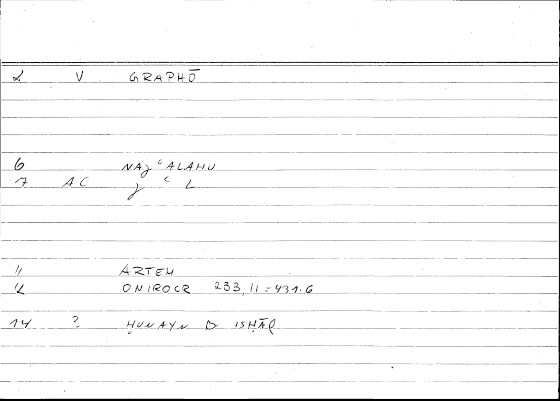 2 V GRAPHŌ
6 NAJʿALAHU
7 AC J ʿ L
11 ARTEM
12 ONIROCR 233,11=431.6
14 ? ḤUNAYN B ISḤĀQ